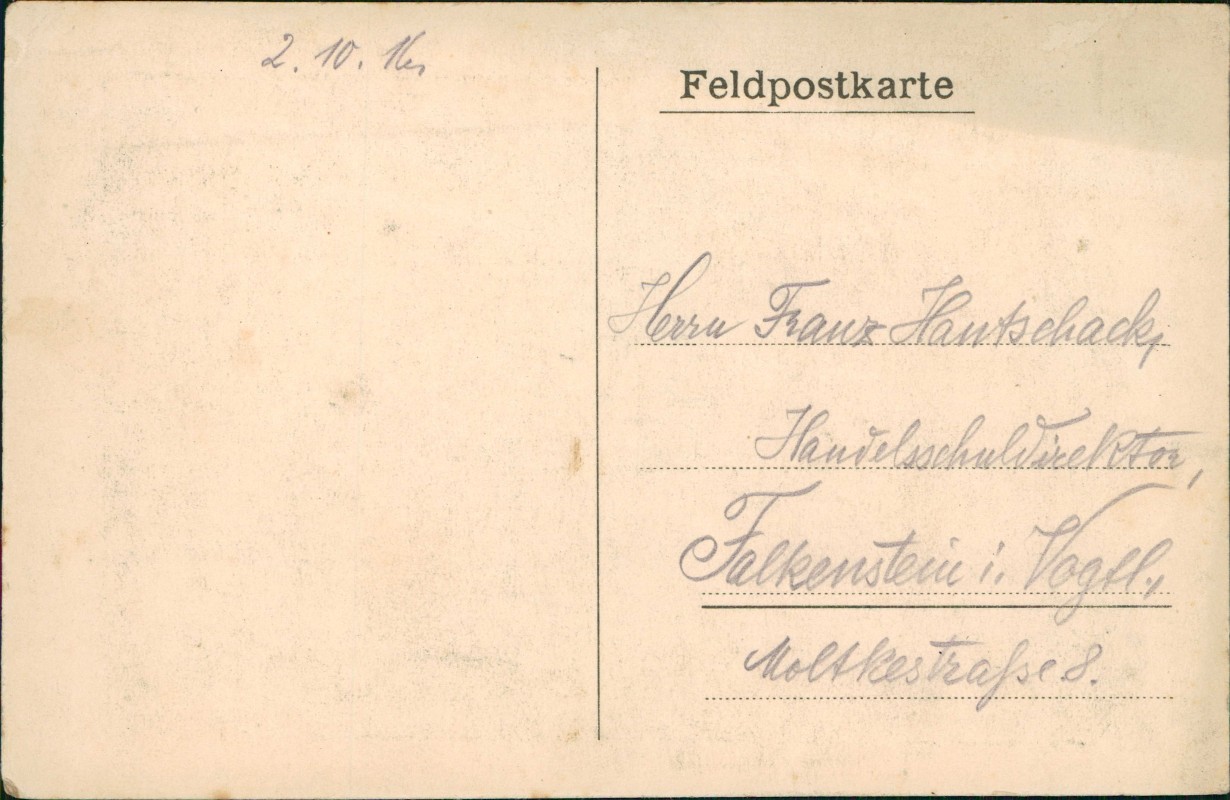 2. 10. 16.
Feldpostkarte
Herrn Franz Hantschack,
Handelsschuldirektor,
Falkenstein i. Vogtl.,
Moltkestraße 8.